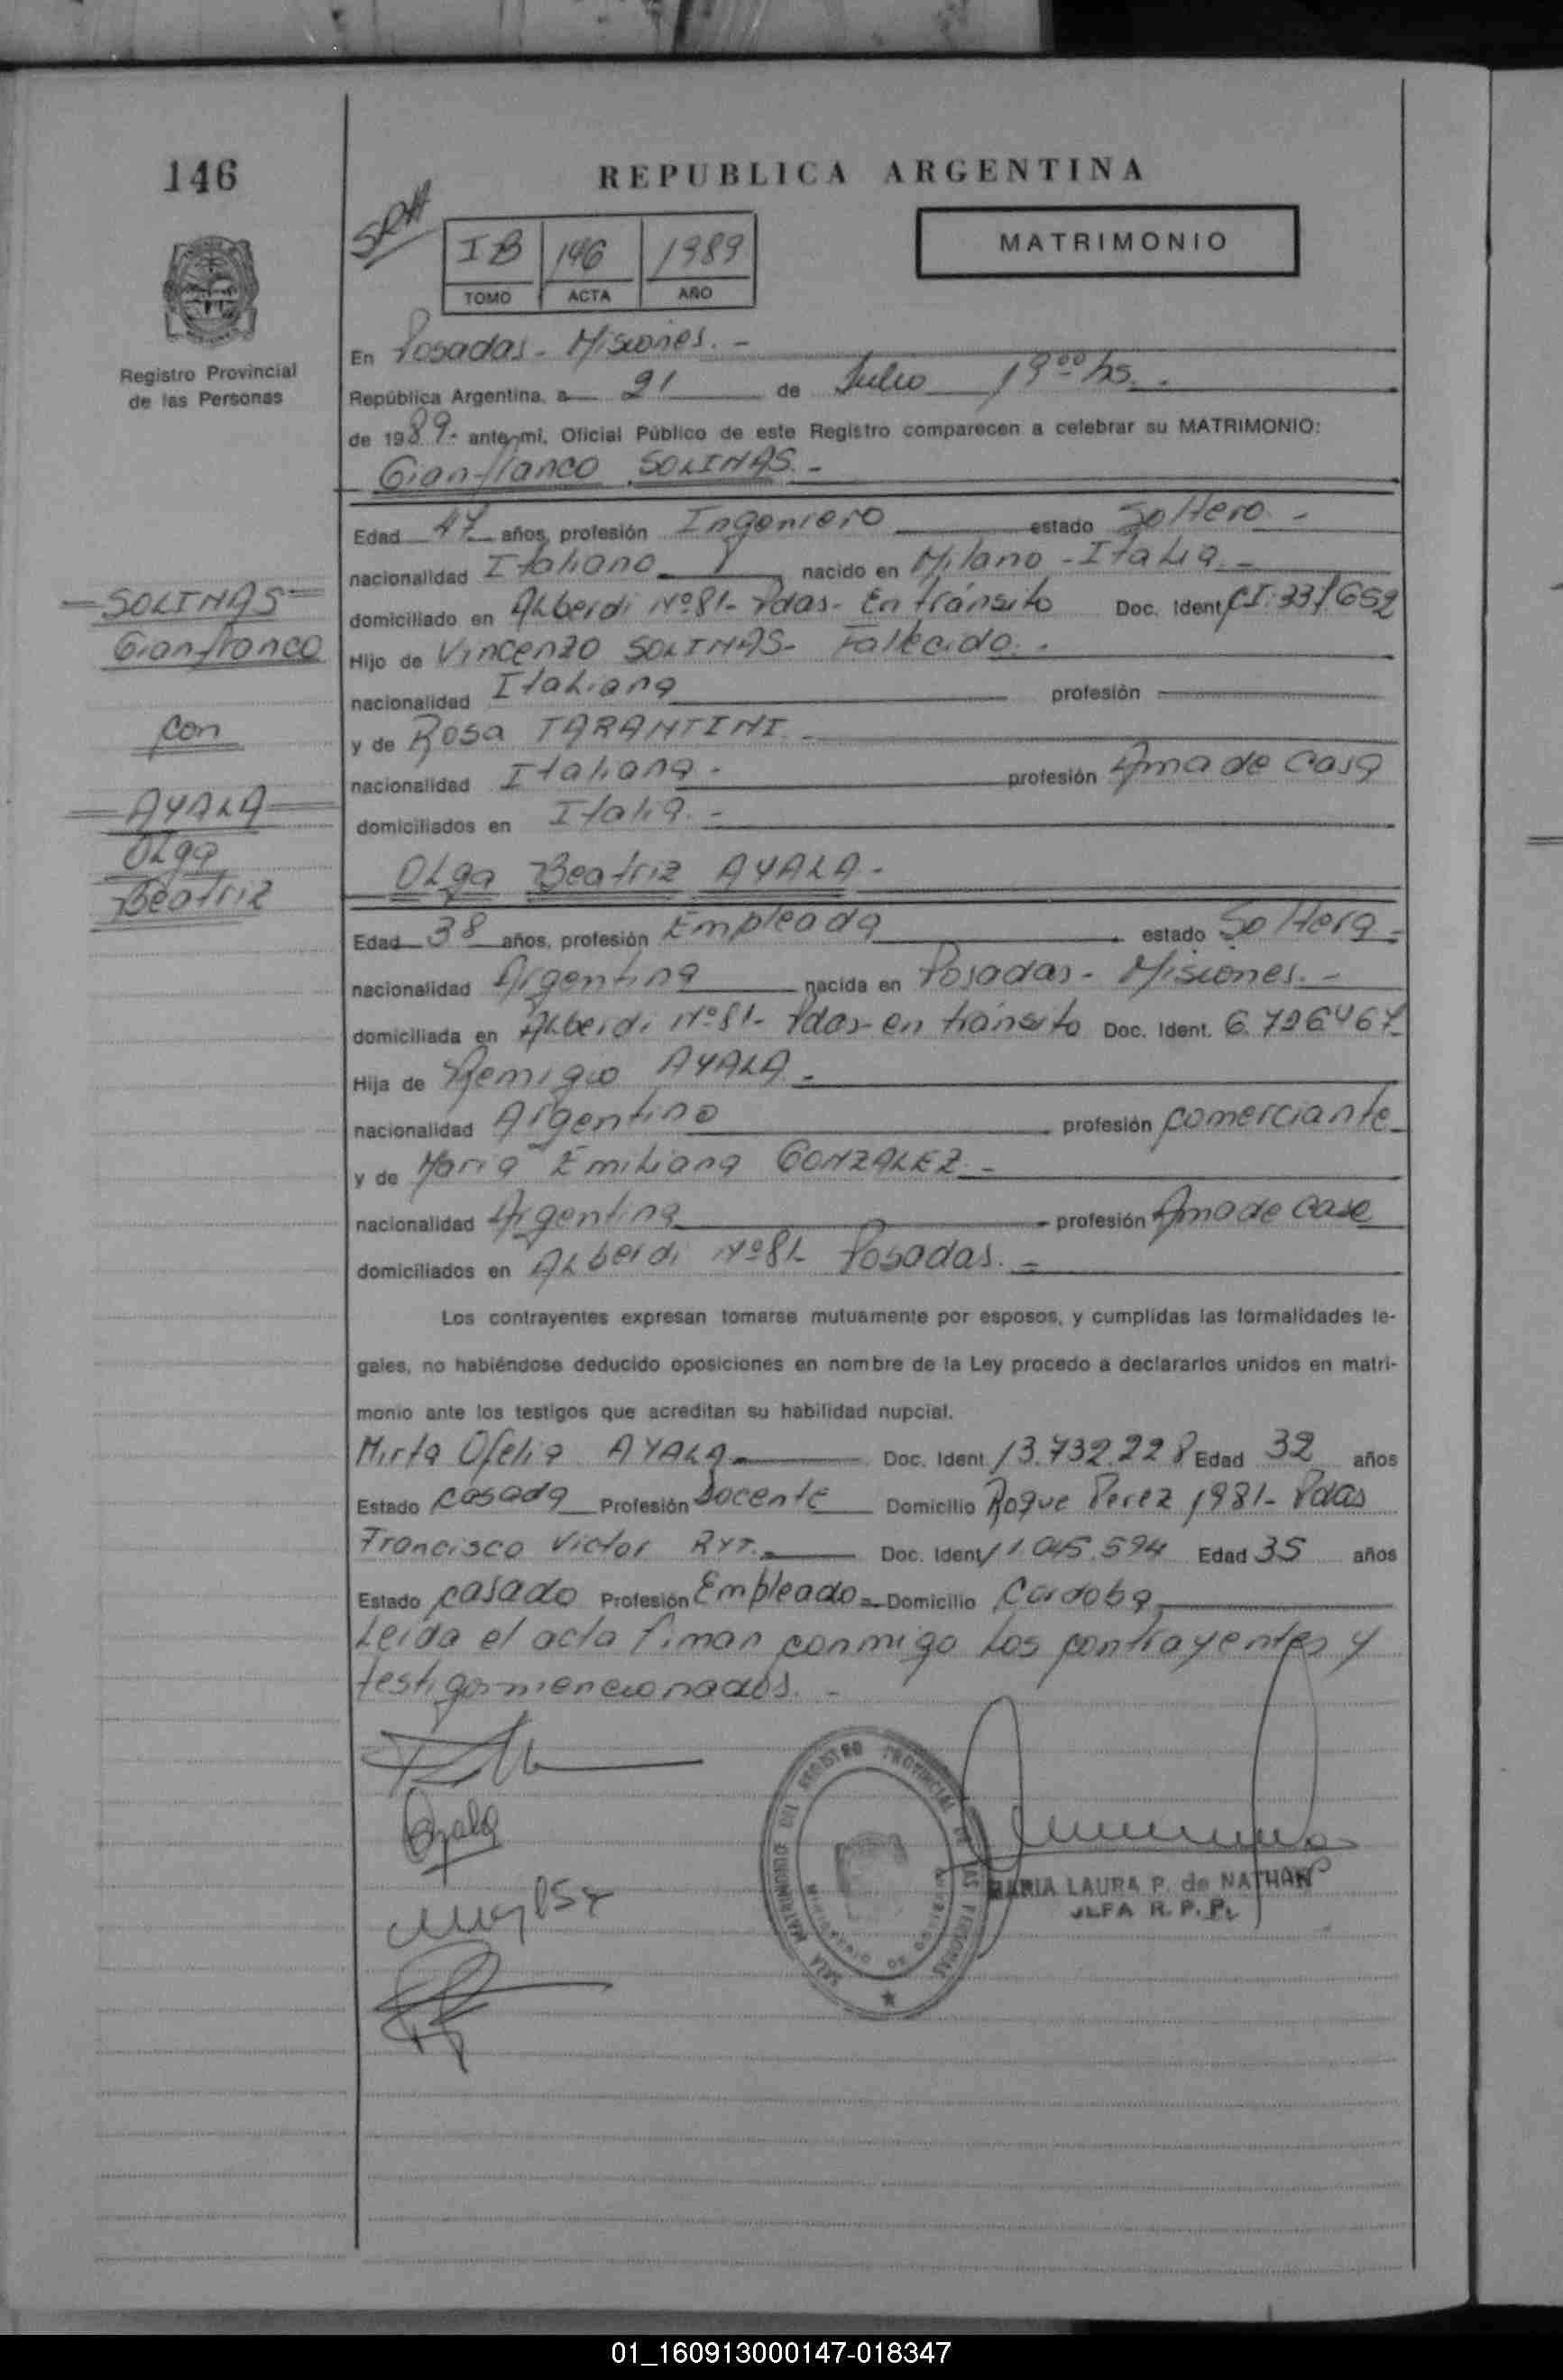 146
REPUBLICA ARGENTINA
SRH
IB 146 1989
TOMO ACTA AÑO
MATRIMONIO
Registro Provincial
de las Personas
En Posadas - Misiones. -
República Argentina, a 21 de Julio 19⁰⁰ hs. -
de 1989.- ante mi, Oficial Público de este Registro comparecen a celebrar su MATRIMONIO:
Gianfranco SOLINAS. -
Edad 47 años, profesión Ingeniero estado Soltero. -
nacionalidad Italiano nacido en Milano - Italia. -
domiciliado en Alberdi Nº 81- Pdas- En tránsito Doc. Ident. CI: 331652
Hijo de Vincenzo SOLINAS- Fallecido. -
nacionalidad Italiana profesión
y de Rosa TARANTINI. -
nacionalidad Italiana - profesión Ama de casa
domiciliados en Italia. -
SOLINAS
Gianfranco
con
AYALA
Olga
Beatriz
Olga Beatriz AYALA -
Edad 38 años, profesión Empleada estado Soltera -
nacionalidad Argentina nacida en Posadas - Misiones. -
domiciliada en Alberdi Nº 81- Pdas- en tránsito Doc. Ident. 6.726467-
Hija de Remigio AYALA -
nacionalidad Argentino profesión comerciante
y de Maria Emiliana GONZALEZ. -
nacionalidad Argentina profesión Ama de casa
domiciliados en Alberdi Nº 81- Posadas. -
Los contrayentes expresan tomarse mutuamente por esposos, y cumplidas las formalidades le-
gales, no habiéndose deducido oposiciones en nombre de la Ley procedo a declararlos unidos en matri-
monio ante los testigos que acreditan su habilidad nupcial.
Mirta Ofelia AYALA Doc. Ident. 13.732.228 Edad 32 años
Estado casada Profesión Docente Domicilio Roque Perez 1981- Pdas
Francisco Victor RYT. Doc. Ident. 11.045.594 Edad 35 años
Estado casado Profesión Empleado - Domicilio Cordoba
Leida el acta firman conmigo los contrayentes y
testigos mencionados. -
REGISTRO PROVINCIAL DE LAS PERSONAS
MARIA LAURA P. de NATHAN
JEFA R. P. P.
01_160913000147-018347